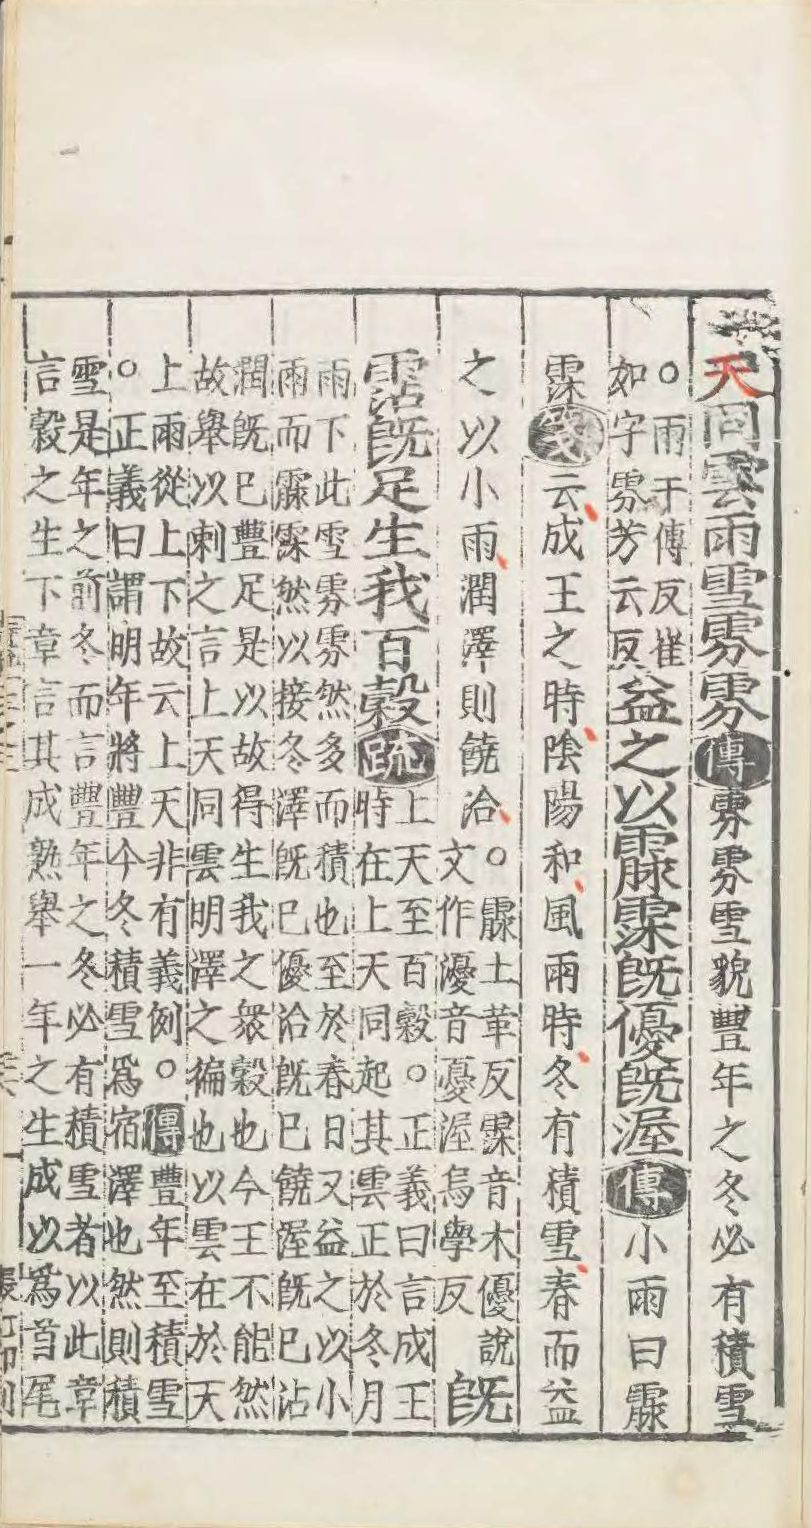 天同雲雨雪雰雰傳雰雰雪貌豐年之冬必有積雪
○雨于傳反崔
如字雰芳云反
益之以霢霂既優既渥傳小雨曰霢
霂箋云成王之時陰陽和風雨時冬有積雪春而益
之以小雨潤澤則饒洽
○霢土革反霂音木優說
文作瀀音憂渥烏學反
既
霑既足生我百穀疏
上天至百穀○正義曰言成王
時在上天同起其雲正於冬月
雨下此雪雰雰然多而積也至於春日又益之以小
雨而霢霂然以接冬澤既已優洽既已饒渥既已沾
潤既已豐足是以故得生我之衆穀也今王不能然
故舉以刺之言上天同雲明澤之徧也以雲在於天
上雨從上下故云上天非有義例○傳豐年至積雪
○正義曰謂明年將豐今冬積雪爲宿澤也然則積
雪是年之前冬而言豐年之冬必有積雪者以此章
言穀之生下章言其成熟舉一年之生成以爲首尾